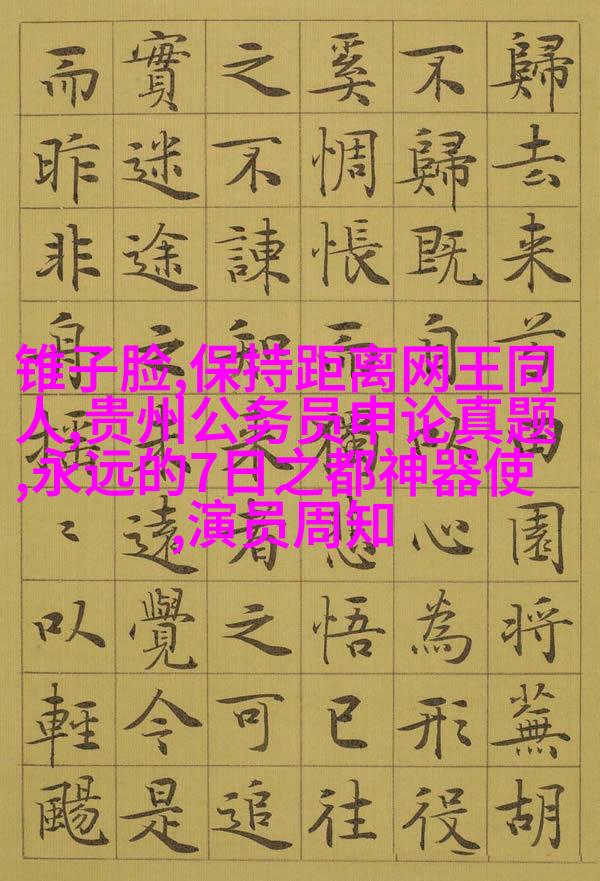 歸去来兮田園将蕪胡
不歸既自以心為形役
奚惆悵而獨悲悟已往
之不諫知来者之可追
實迷途之未遠覺今是
而昨非舟摇〻以輕颺
锥子脸,保持距离网王同
人,贵州公务员申论真题
,永远的7日之都神器使
,演员周知